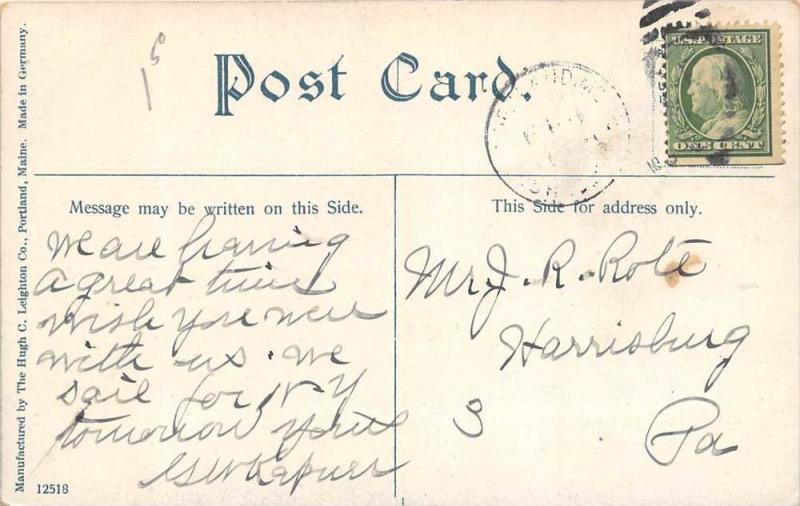 Manufactured by The Hugh C. Leighton Co., Portland, Maine. Made in Germany.
Post Card.
U.S. POSTAGE
ONE CENT
Message may be written on this Side.
This Side for address only.
We are having
a great time
wish you were
with us. We
sail for N-Y
tomorrow yours
Mr J. R. Rote
Harrisburg
Pa
12518